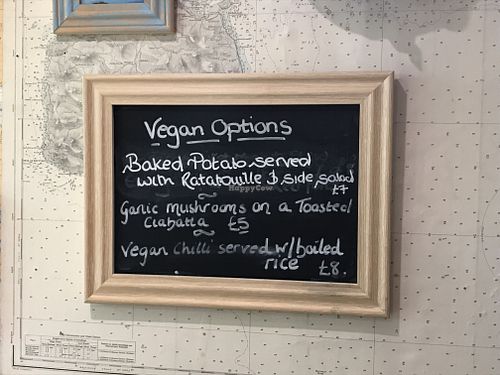 Vegan Options
Baked Potato served
with Ratatouille & side salad
£7
Garlic mushrooms on a Toasted
Ciabatta £5
Vegan Chilli served w/ boiled
rice £8.
HappyCow